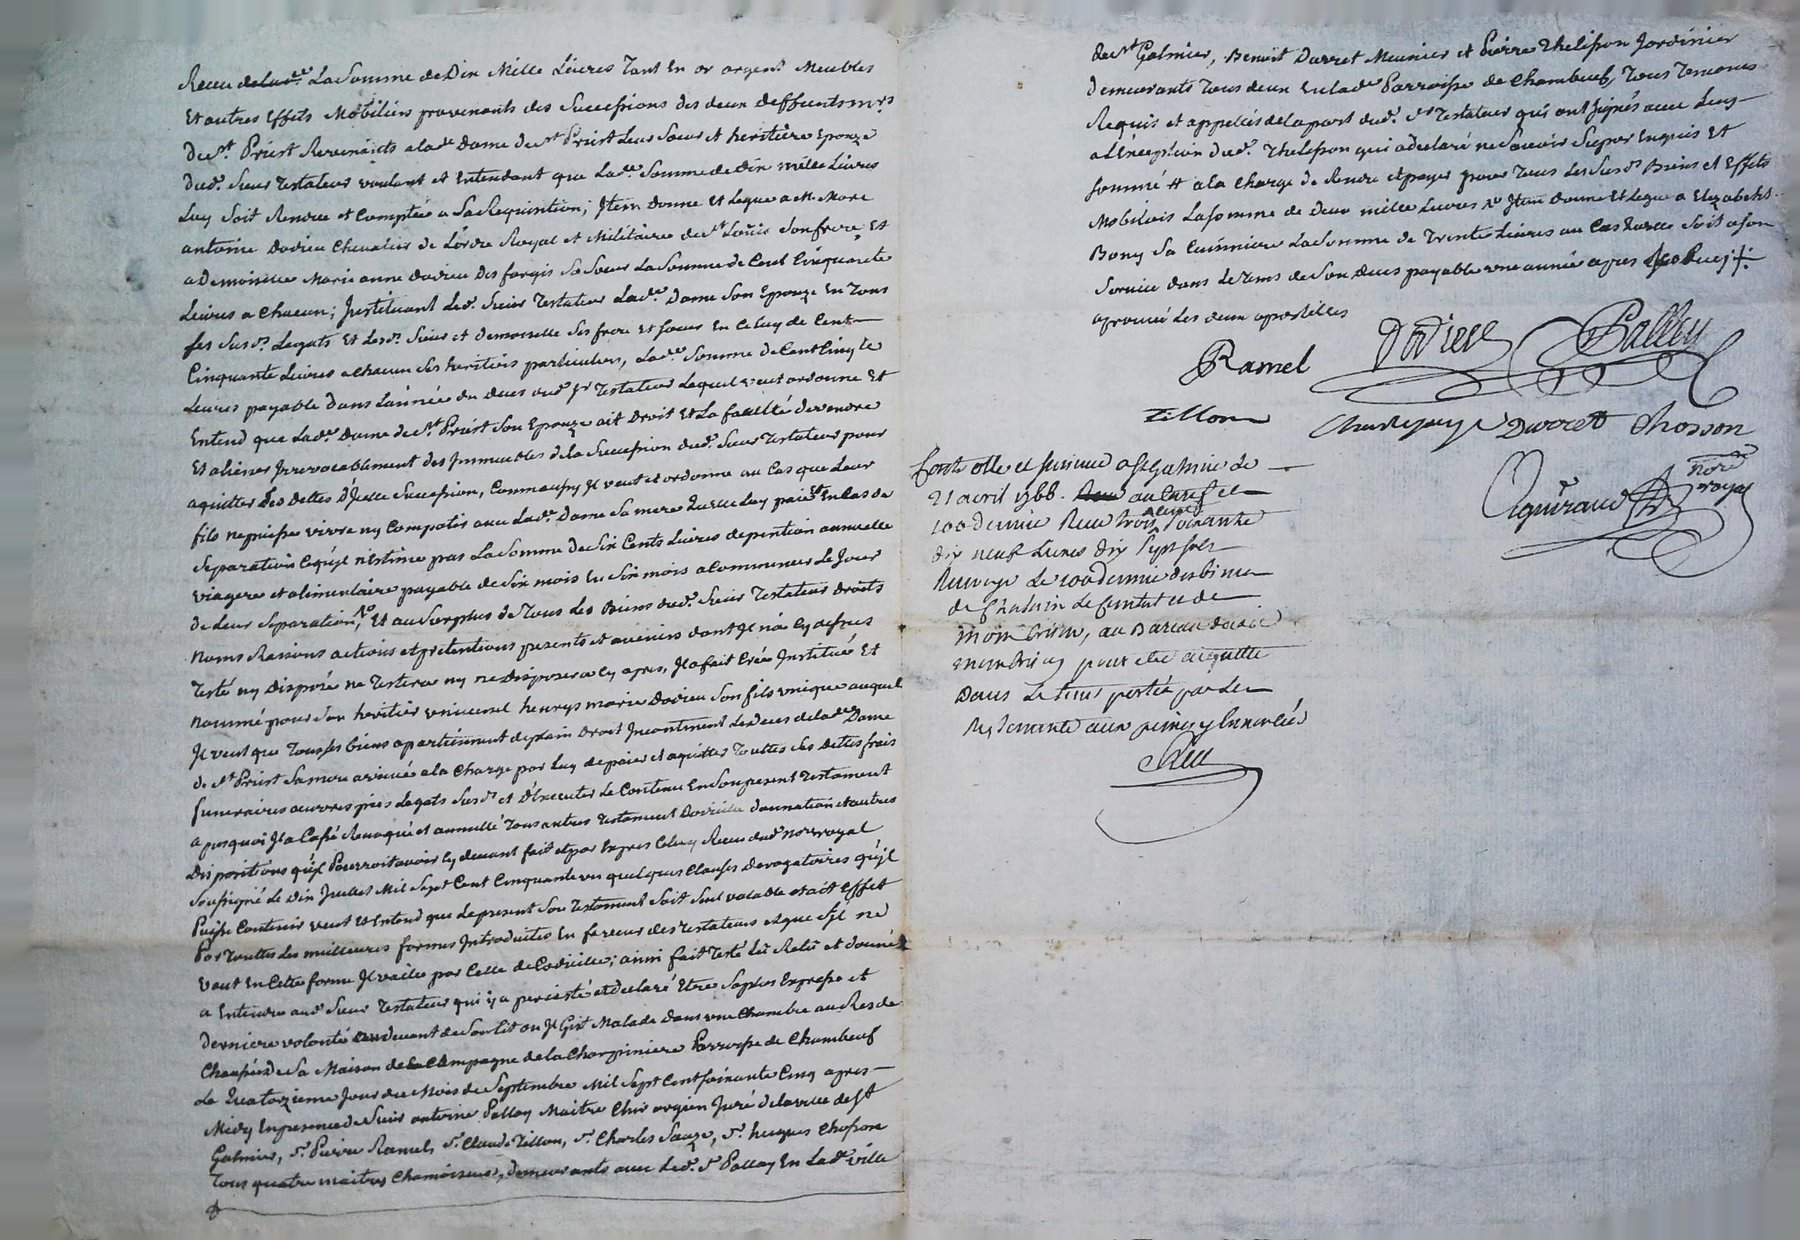 Receu de lad.e La Somme de Dix Mille Livres Tant En or argent Meubles
Et autres Effets Mobiliers provenants des Successions des deux deffunts m.rs
De S.t Priest Revenants a lad.e Dame de S.t Priest Leur Soeur et heritière Epouze
dud.t Sieur Testateur voulant et Entendant que Lad.e Somme de Dix mille Livres
Luy Soit Rendue et Comptée a Sa Requisition, Item Donne Et Legue a M. Marc
antoine Dodieu Chevalier de L'ordre Royal et Militaire de S.t Louis Son frere, Et
a Demoiselle Marie anne Dodieu Des fargis Sa Soeur La Somme de Cent Cinquante
Livres a Chacun; Instituant Led.t Sieur Testateur Lad.e Dame Son Epouze En Tous
ses Susd.ts Legats Et Lesd.ts Sieur et Demoiselle Ses frere Et Soeur En Celuy de Cent
Cinquante Livres a Chacun Ses heritiers particuliers, Lad.e Somme de Cent Cinq.te
Livres payable Dans L'année du Deces dud.t S.r Testateur Lequel veut ordonne Et
Entend que Lad.e Dame de S.t Priest Son Epouze ait Droit Et La faculté de vendre
Et aliéner Irrevocablement des Immeubles de la Succession dud.t Sieur Testateur pour
aquitter Les dettes D'Icelle Succession, Comm'aussy Il veut et ordonne au Cas que Leur
fils ne puisse vivre ny Compatir avec Lad.e Dame Sa mere qu'Elle Luy paie En Cas de
Separation Ce qu'Il n'Estime pas La Somme de Six Cents Livres de pention annuelle
viagere et alimentaire payable de Six mois En Six mois a Commencer Le Jour
de Leur Separation, Et au Surplus de Tous Les Biens dud.t Sieur Testateur Droits
Noms Raisons actions et pretentions presents et avenirs dont Il n'a Cy dessus
Testé ny Disposé ne Testera ny ne Disposera Cy apres, Il a fait Créé Institué Et
nommé pour Son heritier universel henrys marie Dodieu Son fils unique auquel
Il veut que Tous ses biens apartiennent de plain Droit Incontinent Le Deces de lad.e Dame
de S.t Priest Sa mere arrivé a la Charge par Luy de paier et aquitter Touttes Ses Dettes frais
funeraires oeuvres pies Legats Susd.ts et D'Executer Le Contenu En Son present Testament
apres quoi Il a Cassé Revoqué et annullé Tous autres Testament Codicille donnation et autres
Dispositions qu'Il Pourroit avoir Cy devant fait et par Expres Celuy Receu dud.t No.re royal
Soussigné Le Dix Juillet Mil Sept Cent Cinquante un quelques Clauses Derogatoires qu'Il
Puisse Contenir veut Et Entend que Le present Son Testament Soit Seul valable et ait Effet
Par Touttes Les meilleures formes Introduites En faveur des Testateurs et que S'Il ne
vaut En Cette forme Il vaille par Celle de Codicille; ainsi fait Testé Lû Relû et donné
a Entendre aud.t Sieur Testateur qui y a percisté et declaré Etre Sa plus Expresse et
Derniere volonté au devant de Son Lit ou Il Git Malade Dans une Chambre au Res de
Chaussée de Sa Maison de Campagne de la Charpiniere Parroisse de Chambeuf
Le Quatorzieme Jour du Mois de Septembre Mil Sept Cent soixante Cinq apres
Midy En presence de Sieur antoine Pallay Maitre Chirurgien Juré de la ville de S.t
Galmier, S.r Pierre Ramel, S.r Claude Tillon, S.r Charles Sauze, S.r hugues Chosson
Tous quatre maitres Chamoiseurs, demeurants avec Led.t S.r Pallay En Lad.e ville
de S.t Galmier, Benoit Durret Meunier et Pierre Thelisson Jardinier
Demeurants Tous deux En lad.e Parroisse de Chambeuf, Tous Temoins
Requis et appellés de la part dud.t S.r Testateur qui ont Signés avec Luy
a L'Exception dud.t Thelisson qui a declaré ne Savoir Signer Enquis Et
sommé # a la Charge de Rendre et payer pour Tous Les Susd.ts Biens et Effets
Mobiliers La Somme de Deux mille Livres Item Donne Et Legue a Elizabeth
Bony Sa Cuisiniere La Somme de Trente Livres au Cas qu'elle Soit a Son
Service dans Le Tems de Son Deces payable une année apres
aprouvé Les deux apostilles
Ramel Dodieu Pallay
Tillon Durret Chosson
Aguiraud no.re royal
a St Galmier le
21 avril 1766.
100 denier Receu trois cent Soixante
dix neuf Livres dix Sept sols
Renvoyé Le 100 denier des biens
de
montbrison, au Bureau dudit
montbrison pour etre acquitté
Dans Le tems porté par Les
Reglements aux peines y Enoncées